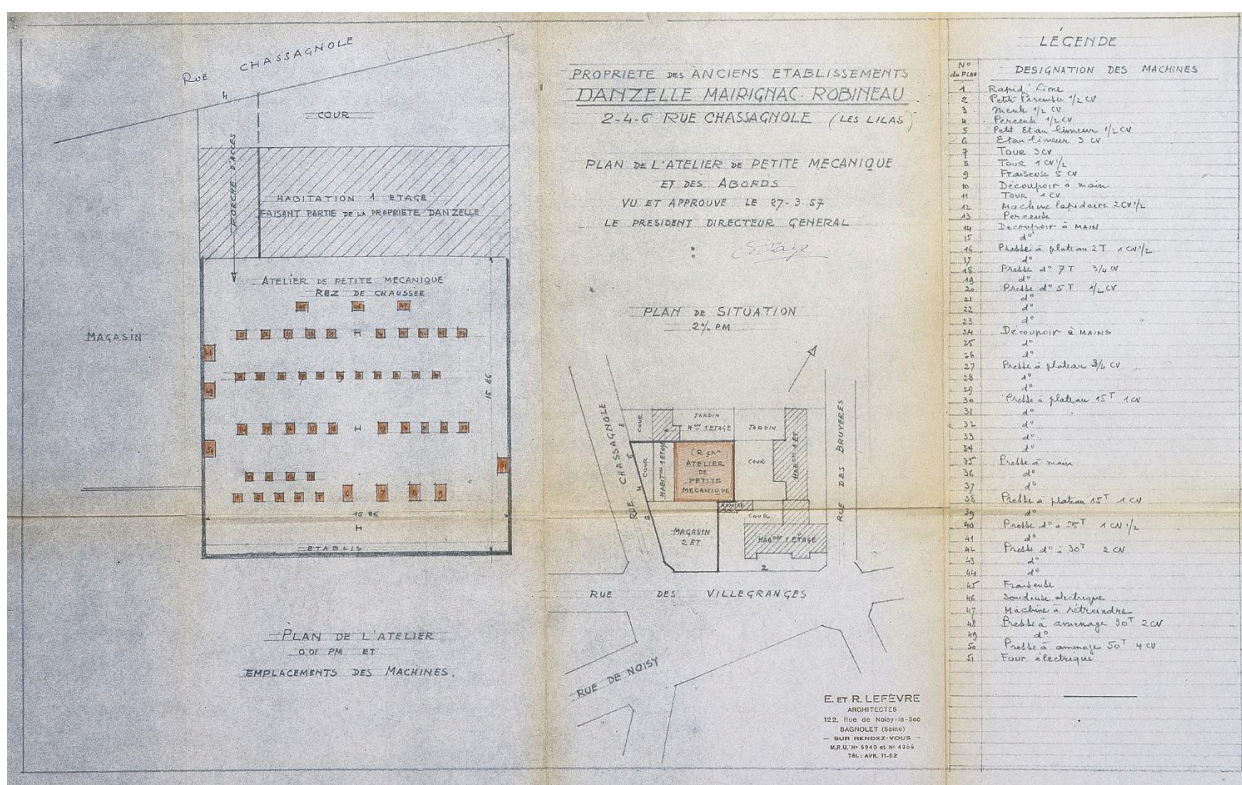 RUE CHASSAGNOLE
4
COUR
PORCHE D'ACCES
HABITATION 1 ETAGE
FAISANT PARTIE DE LA PROPRIETE DANZELLE
ATELIER DE PETITE MECANIQUE
REZ DE CHAUSSER
MAGASIN
15.86
15.86
ETABLIS
PLAN DE L'ATELIER
0.01 PM ET
EMPLACEMENTS DES MACHINES.
PROPRIETE DES ANCIENS ETABLISSEMENTS
DANZELLE MAIRIGNAC ROBINEAU
2-4-6 RUE CHASSAGNOLE (LES LILAS)
PLAN DE L'ATELIER DE PETITE MECANIQUE
ET DES ABORDS
VU ET APPROUVE LE 27-3-57
LE PRESIDENT DIRECTEUR GENERAL
PLAN DE SITUATION
2% PM
RUE CHASSAGNOLE
COUR
JARDIN
1 ETAGE
JARDIN
COUR
ATELIER
DE
PETITE
MECANIQUE
COUR
RUE DES BRUYERES
MAGASIN
2 ET
COUR
1 ETAGE
2
RUE DES VILLEGRANGES
RUE DE NOISY
E. ET R. LEFÈVRE
ARCHITECTES
122, Rue de Noisy-le-Sec
BAGNOLET (Seine)
— SUR RENDEZ-VOUS —
M.R.U. N° 5940 et N° 4366
TÉL: AVR. 11-52
LÉGENDE
N° du PLAN DESIGNATION DES MACHINES
1 Rapid' Lime
2 Petite Perceuse 1/2 CV
3 Meule 1/2 CV
4 Perceuse 1/2 CV
5 Petit Etau limeur 1/2 CV
6 Etau limeur 3 CV
7 Tour 3 CV
8 Tour 1 CV 1/2
9 Fraiseuse 5 CV
10 Découpoir à main
11 Tour 1 CV
12 Machine lapidaire 2 CV 1/2
13 Perceuse
14 Découpoir à MAIN
15 d°
16 Presse à plateau 2T 1 CV 1/2
17 d°
18 Presse d° 7T 3/4 CV
19 d°
20 Presse d° 5T 1/2 CV
21 d°
22 d°
23 d°
24 Découpoir à MAINS
25 d°
26 d°
27 Presse à plateau 3/4 CV
28 d°
29 d°
30 Presse à plateau 15T 1 CV
31 d°
32 d°
33 d°
34 d°
35 Presse à main
36 d°
37 d°
38 Presse à plateau 15T 1 CV
39 d°
40 Presse d° à 25T 1 CV 1/2
41 d°
42 Presse d° à 30T 2 CV
43 d°
44 d°
45 Fraiseuse
46 Soudeuse electrique
47 Machine à rétreindre
48 Presse à amenage 30T 2 CV
49 d°
50 Presse à amenage 50T 4 CV
51 Four électrique